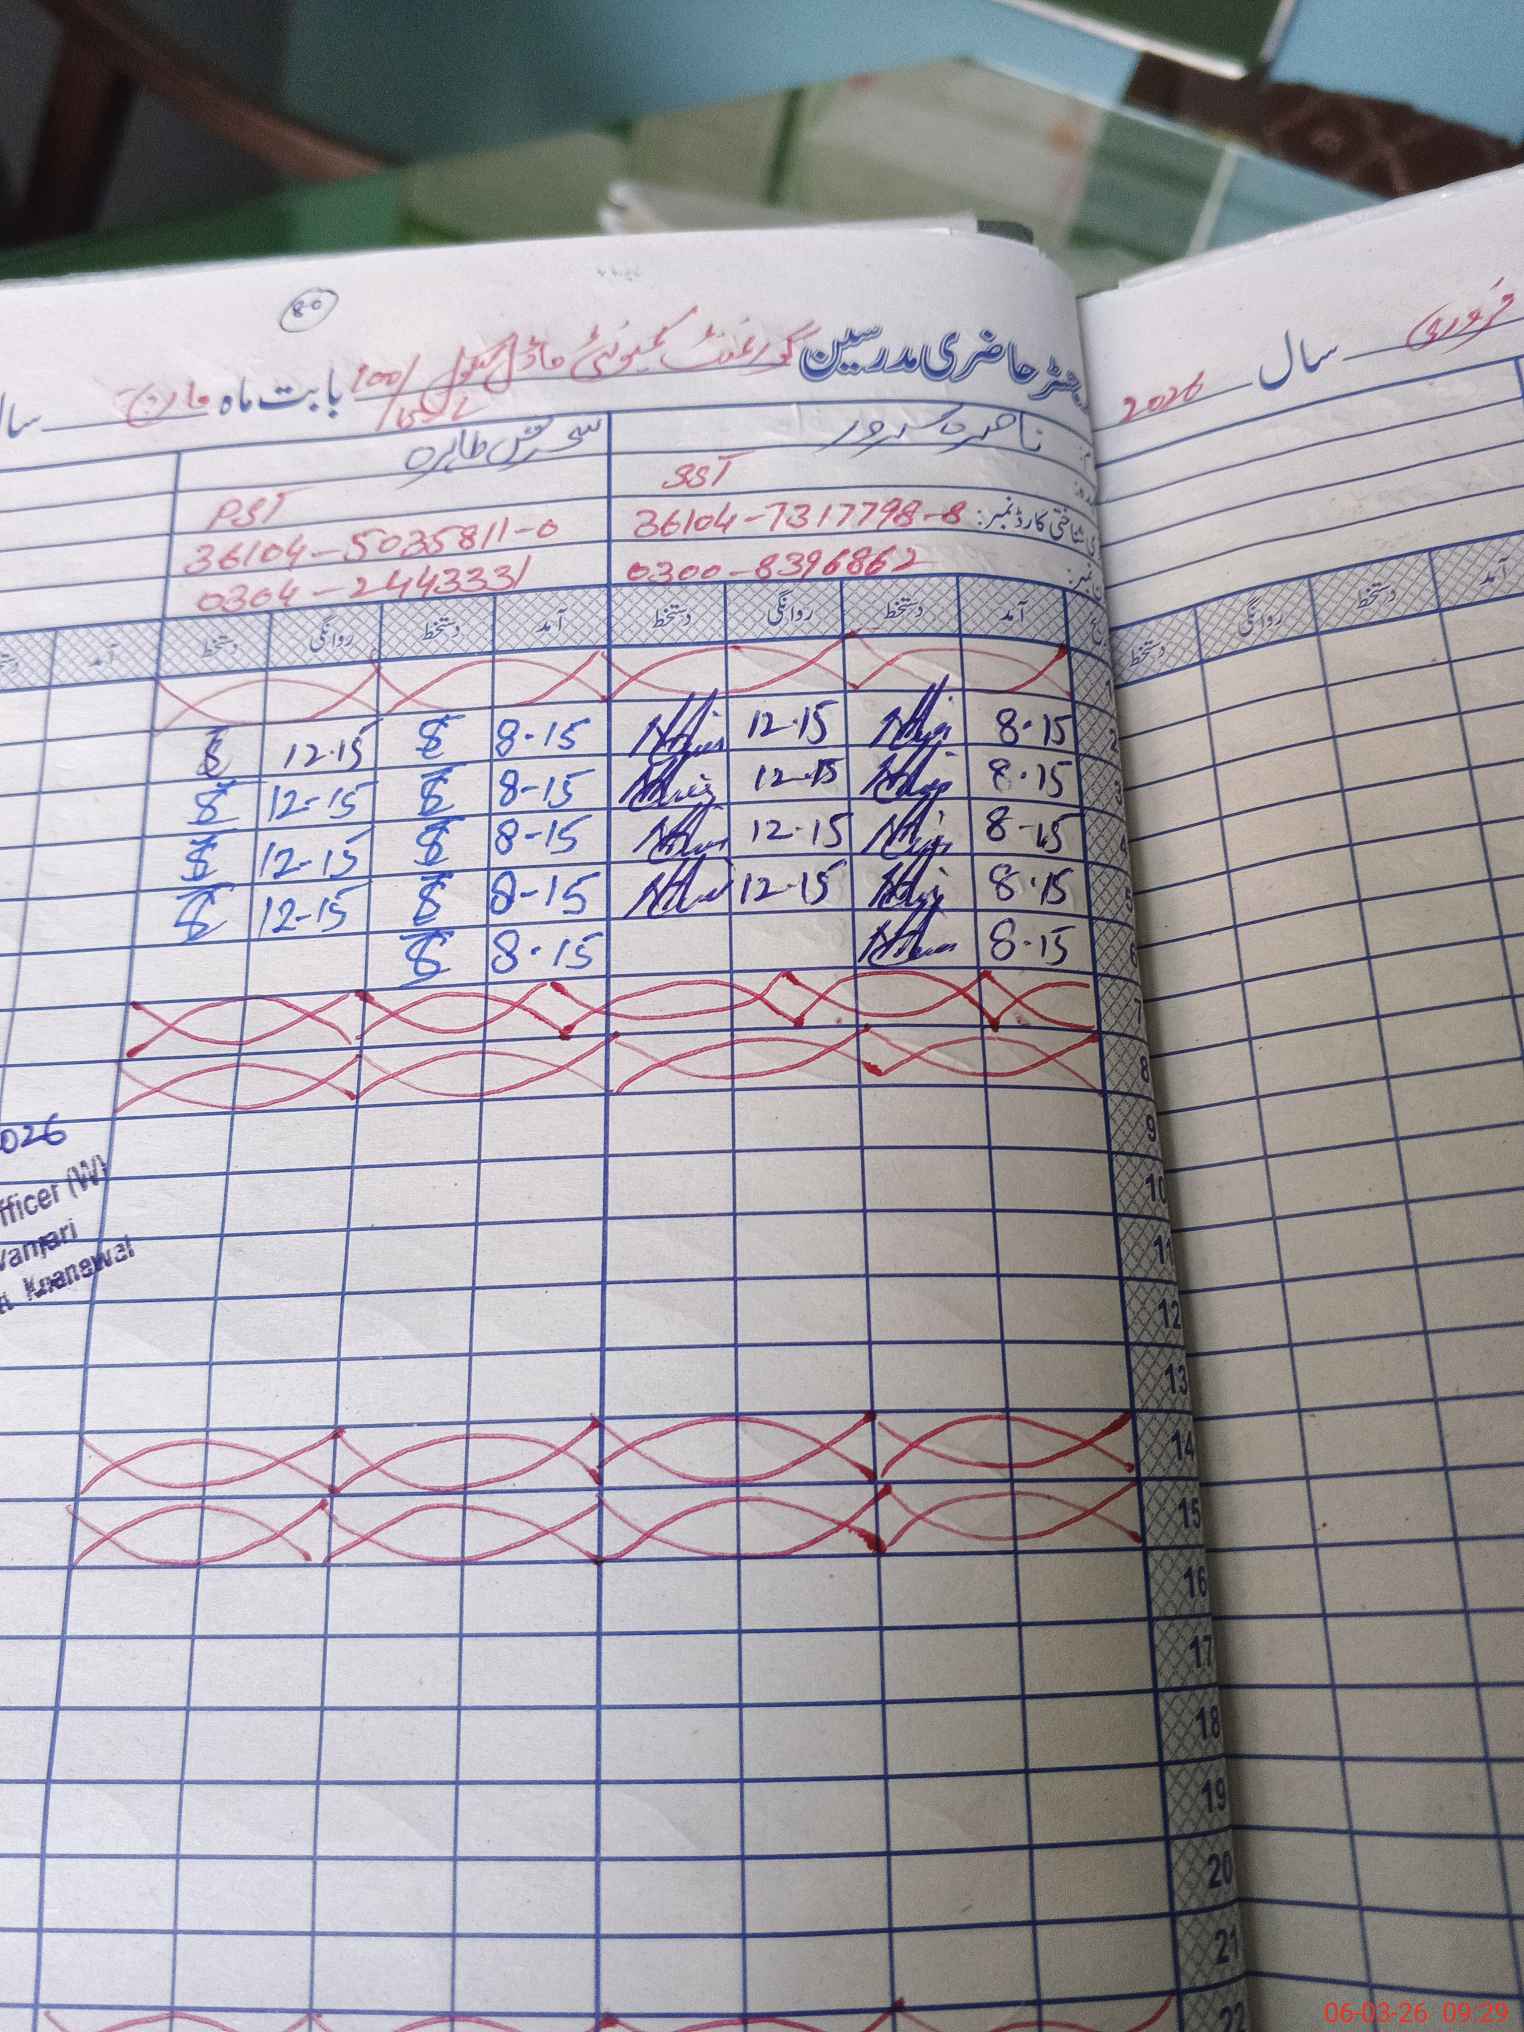 80
رجسٹر حاضری مدرسین گورنمنٹ کمیونٹی ماڈل سکول 100/ بابت ماہ مارچ سال
سال فروری 2026
ناصرہ سرور
سحرش طاہرہ
SST
PST
شناختی کارڈ نمبر: 36104-7317798-8
36104-5035811-0
نمبر: 0300-8396862
0304-2443331
آمد دستخط روانگی دستخط آمد دستخط روانگی دستخط آمد
آمد دستخط روانگی دستخط
1
2 8.15 12.15 8.15 12.15
3 8.15 12.15 8-15 12-15
4 8-15 12.15 8-15 12-15
5 8.15 12.15 8-15 12-15
6 8.15 8.15
7
8
9
026
10
fficer (W)
11
Khanewal
12
13
14
15
16
17
18
19
20
21
22
06-03-26 09:29